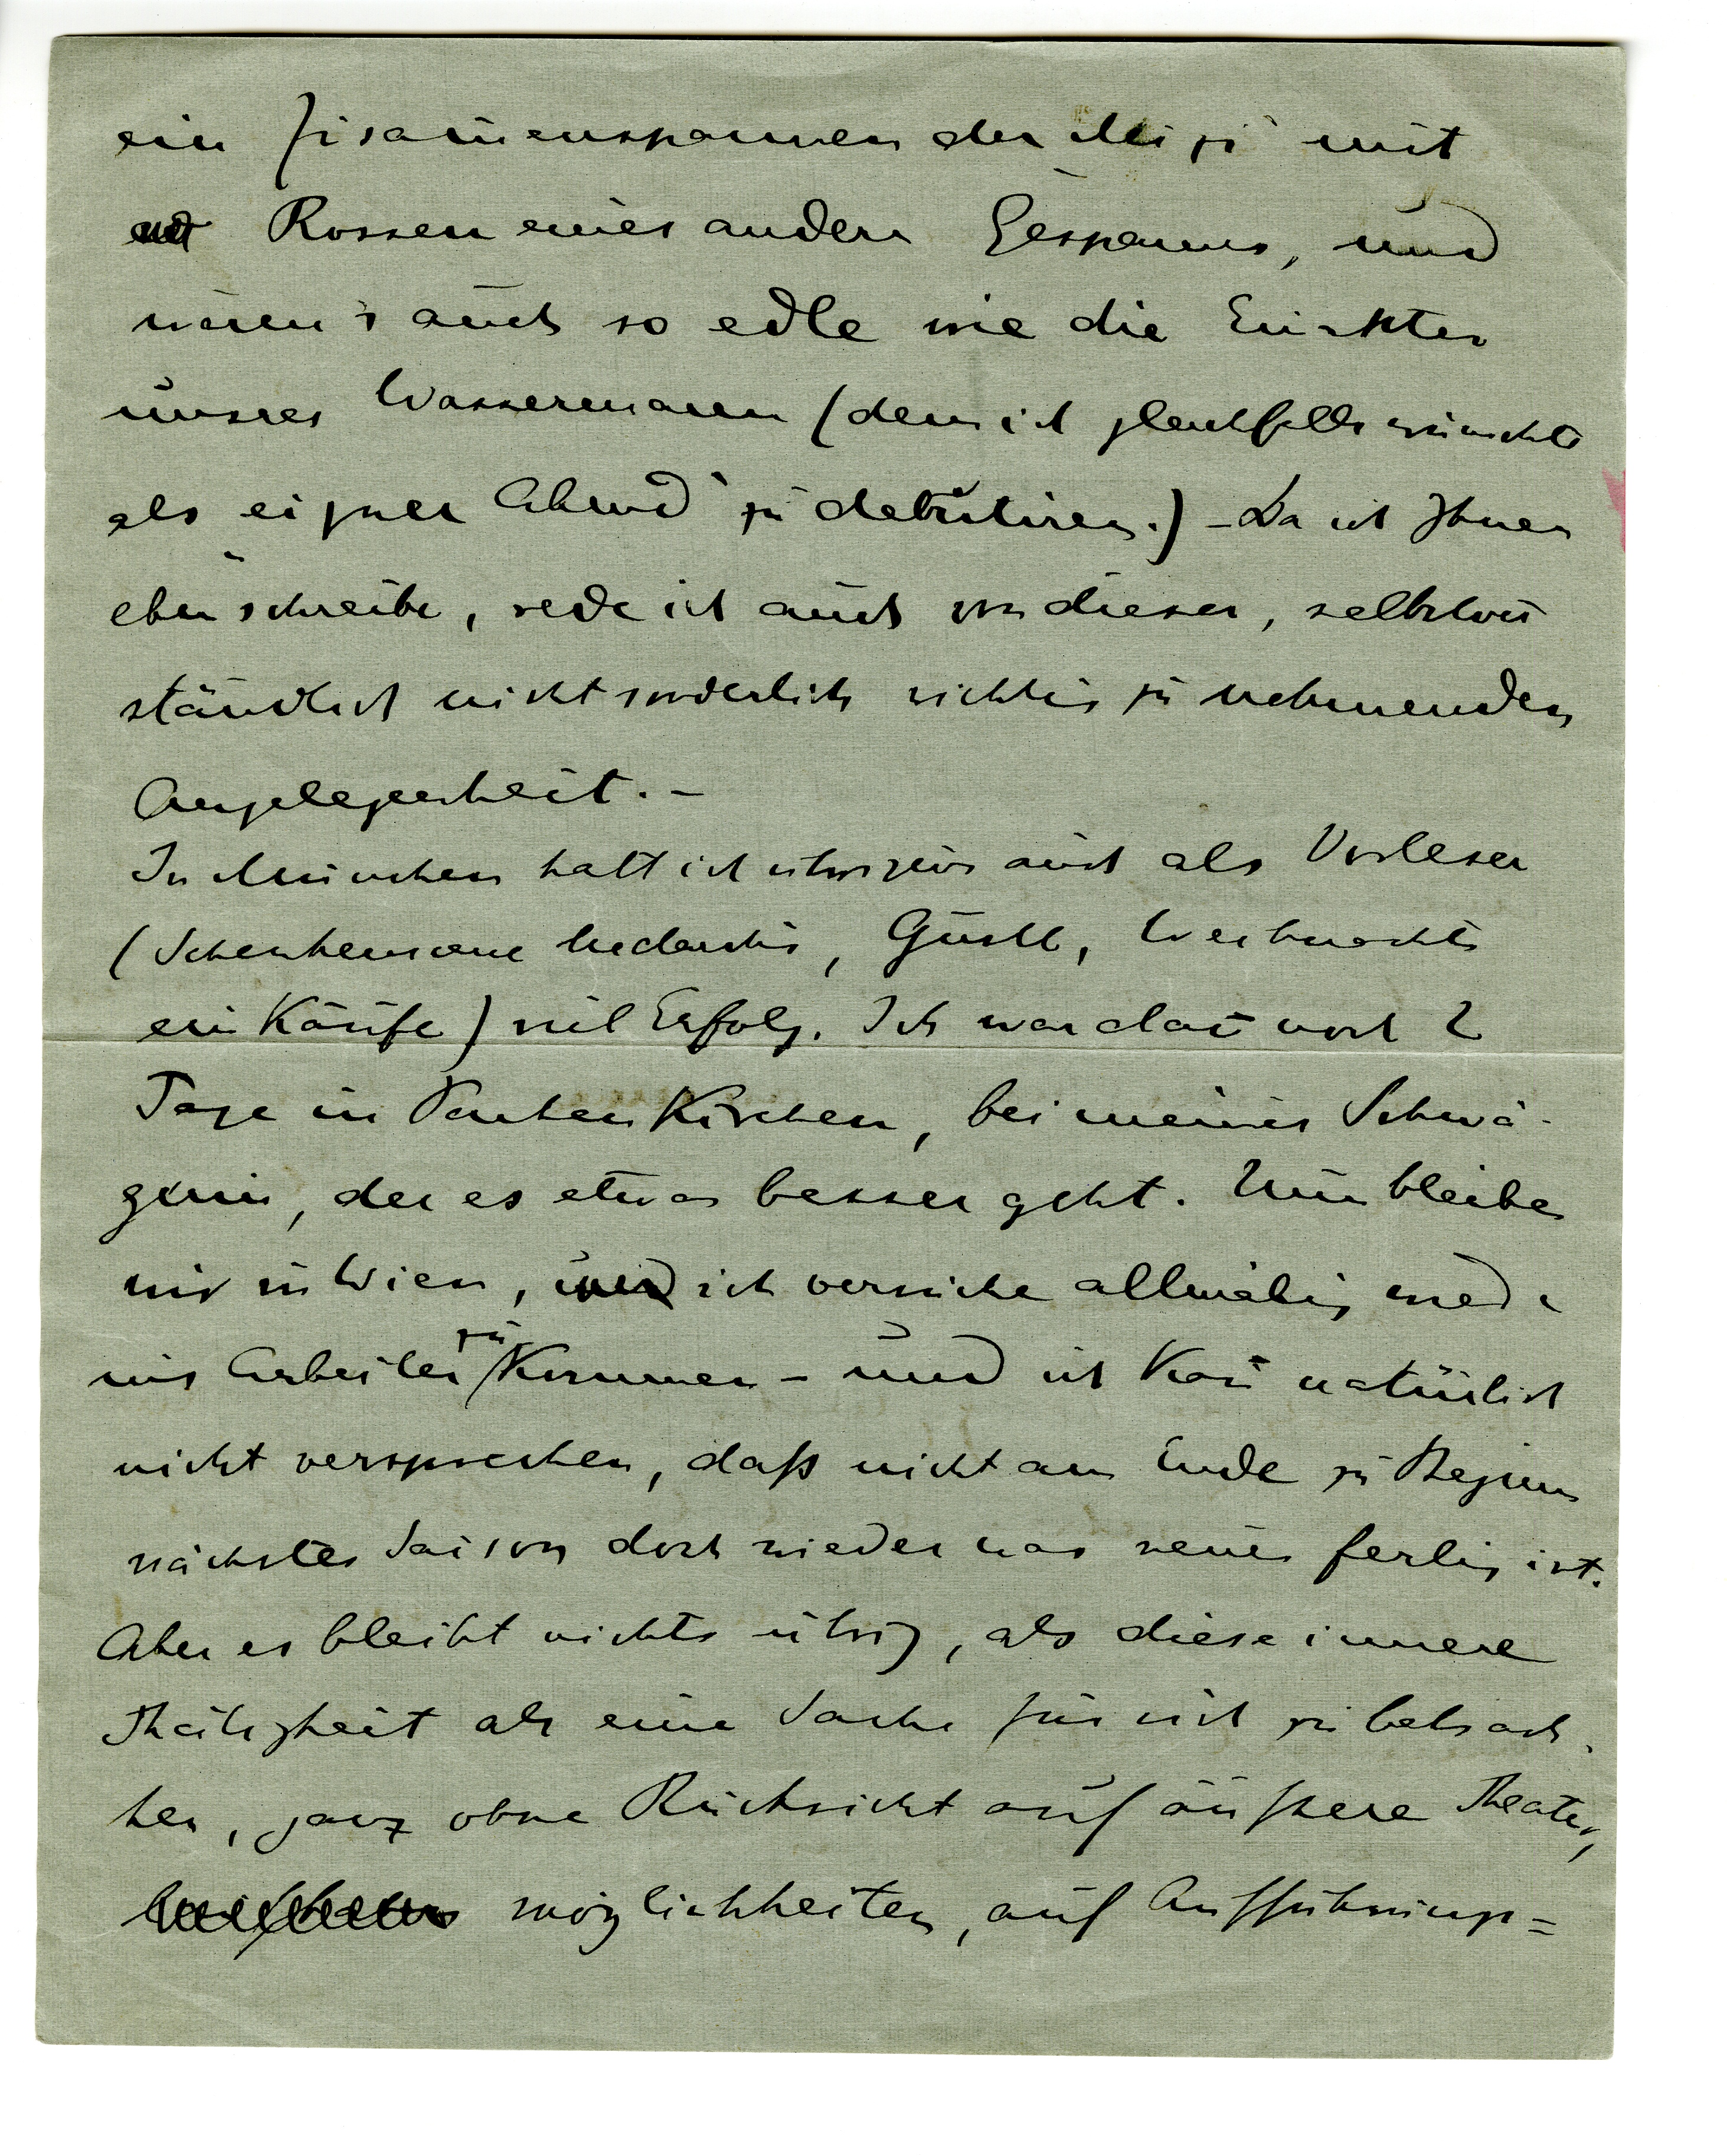 ein Zusam̅enspannen der Mizi mit
Rossen eines andern Gespanns, und
wären's auch so edle wie die Einakter
unsres Wassermann (dem ich gleichfalls wünschte
als eigner Abend zu debutiren.) – Da ich Ihnen
eben schreibe, rede ich auch von dieser, selbstver
ständlich nicht sonderlich wichtig zu nehmenden
Angelegenheit. –
In München hatt ich übrigens auch als Vorleser
(Medardus, Gustl, Weihnachts
einkäufe) viel Erfolg. Ich war dan̅ noch 2
Tage in Partenkirchen, bei meiner Schwä-
gerin, der es etwas besser geht. Nun bleiben
wir in Wien, und ich versuche allmälig wieder
ins Arbeiten zu kommen – und ich kan̅ natürlich
nicht versprechen, daß nicht am Ende zu Beginn
nächster Saison doch wieder was neues fertig ist.
Aber es bleibt nichts übrig, als diese innere
Thätigkeit als eine Sache für sich zu betrach-
ten, ganz ohne Rücksicht auf äußere Theater,
möglichkeiten, auf Aufführungs=